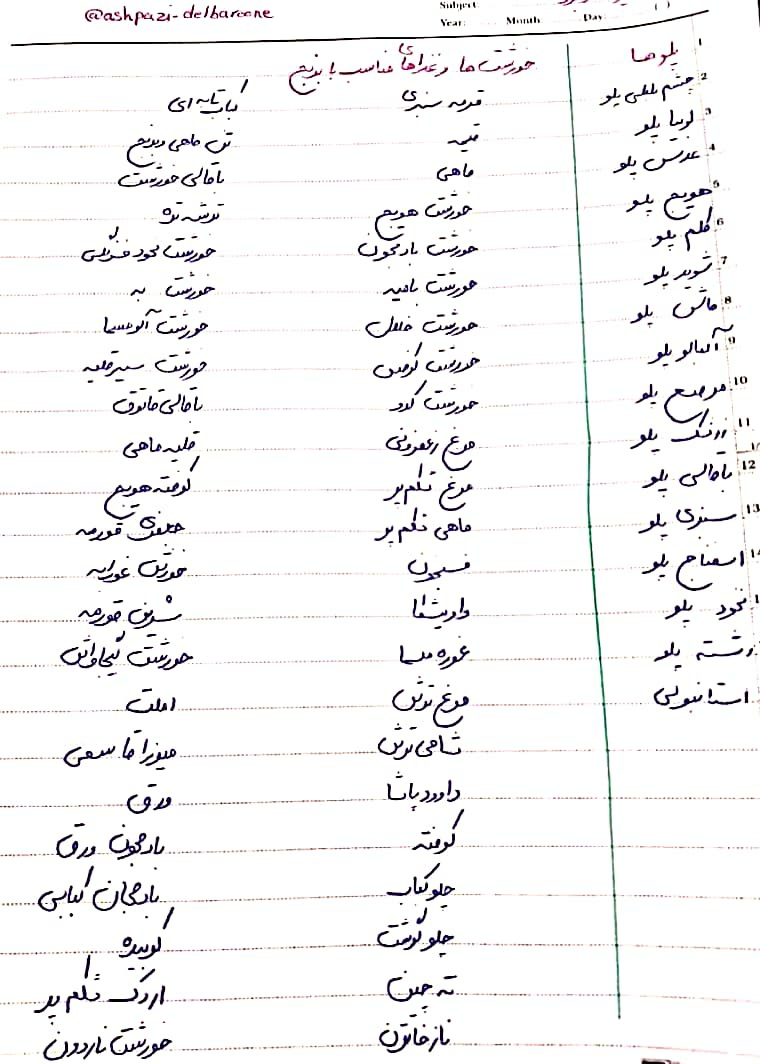 @ashpazi-delbareone
Subject
Year: Month Day: ( )
پلوها خورشت‌ها و غذاهای مناسب با برنج
چشم بلبلی پلو قرمه سبزی کباب تابه ای
لوبیا پلو قیمه تن ماهی و برنج
عدس پلو ماهی باقالی خورشت
هویج پلو خورشت هویج ترشه تره
کلم پلو خورشت بادمجون خورشت نخود فرنگی
شوید پلو خورشت بامیه خورشت به
ماش پلو خورشت خلال خورشت آلو مسما
آلبالو پلو خورشت کرفس خورشت سیر قلیه
مرصع پلو خورشت کدو باقالی قاتوق
زرشک پلو مرغ زعفرونی قلیه ماهی
باقالی پلو مرغ شکم پر کوفته هویج
سبزی پلو ماهی شکم پر قورمه
اسفناج پلو فسنجون خورش غورابه
نخود پلو واویشکا شیرین قورمه
رشته پلو غوره مسما خورشت گیجاواش
استانبولی مرغ ترش املت
شامی ترش میرزا قاسمی
داوود پاشا ورق
کوفته بادمجون ورق
چلو کباب بادمجان کبابی
چلو گوشت کوبیده
ته چین اردک شکم پر
ناز خاتون خورشت ناردون